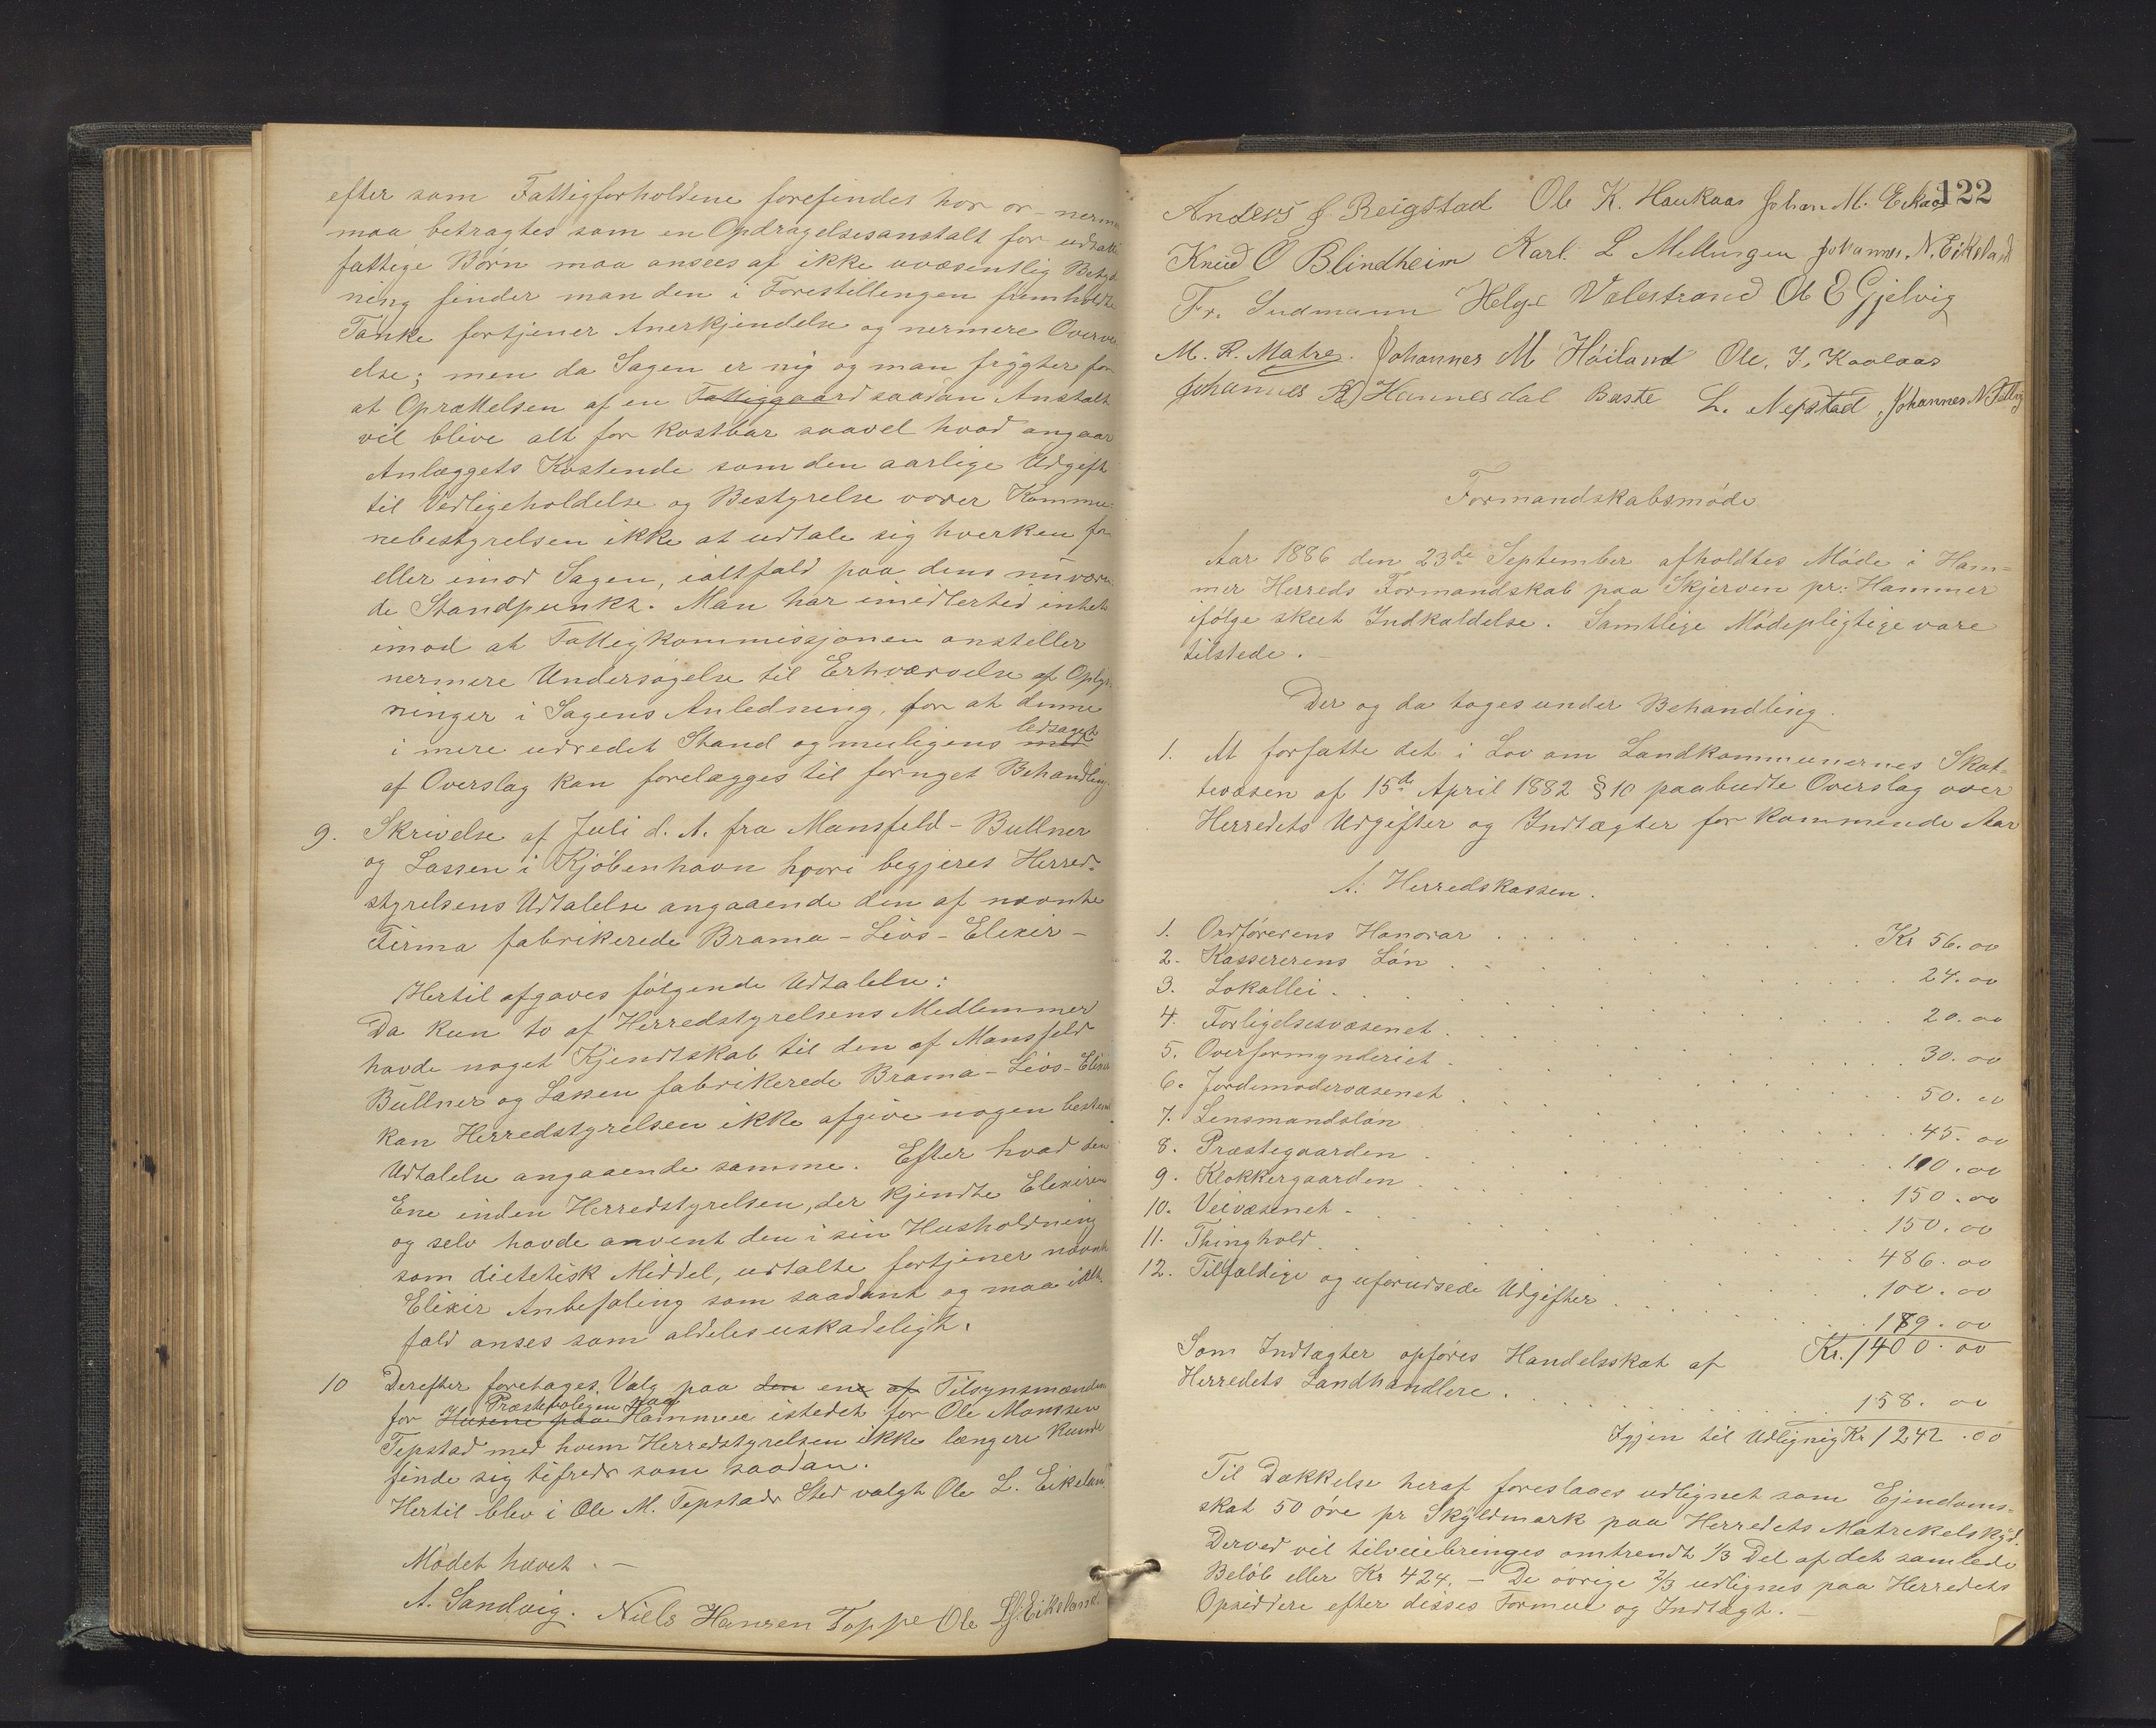 efter som Fattigforholdene forefindes hos os – nerm
maa betragtes som en Opdragelsesanstalt for udsatte
fattige Børn maa ansees af ikke uvæsentlig Betyd
ning finder man den i Forestillingen fremholdte
Tanke fortjener Anerkjendelse og nermere Overvei
else; men da Sagen er nÿ og man frÿgter for
at Oprættelsen af en Fattiggaard saadan Anstalt
vil blive alt for kostbar saavel hvad angaar
Anlæggets Kostende som den aarlige Udgift
til Vedligeholdelse og Bestyrelse vover Kommu-
nebestyrelsen ikke at udtale sig hverken for
eller imod Sagen, ialtfald paa dens nuværen
de Standpunkt. Man har imidlertid intet
imod at Fattigkommissjonen anstiller
nermere Undersøgelse til Erhværvelse af Oplys-
ninger i Sagens Anledning, for at denne
i mere udredet Stand og muligens med ledsaget
af Overslag kan forelægges til fornyet Behandling.
9. Skrivelse af Juli d. A. fra Mansfeld-Bullner
og Lassen i Kjøbenhavn hvori begjeres Herred-
styrelsens Udtalelse angaaende den af nævnte
Firma fabrikerede Brama-Livs-Elixir –
Hertil afgaves følgende Udtalelse:
Da kun to af Herredstyrelsens Medlemmer
havde noget Kjendskab til den af Mansfeld
Büllner og Lassen fabrikerede Brama-Livs-Elixir
kan Herredstyrelsen ikke afgive nogen bestemt
Udtalelse angaaende samme. Efter hvad den
Ene inden Herredstyrelsen, der kjendte Elexiren
og selv havde anvent den i sin Husholdning
som dietetisk Middel, udtalte fortjener nævnte
Elixir Anbefaling som saadant og maa ialt-
fald anses som aldeles uskadeligt.
10 Derefter foretages Valg paa den ene af Tilsynsmænden
for Husene paa Præsteboligen paa Hammer istedet for Ole Monssen
Tepstad med hvem Herredstyrelsen ikke længere kunde
finde sig tifreds som saadan.
Hertil blev i Ole M. Tepstads Sted valgt Ole L. Eikeland
Mødet hævet. –
A. Sandvig. Niels Hansen Toppe Ole LS Eikeland.
122
Anders J Reigstad Ole K. Haukaas Johan M. Eikaas
Knud O Blindheim Karl. L Mellingen Johannes. N. Eikeland
Fr. Sudmann Helge Valestrand Ole E Gjelvig
M. R. Matre. Johannes M Høiland Ole. J. Kaalaas
Johannes A Hannesdal Baste L. Nepstad Johannes N
Formandskabsmøde
Aar 1886 den 23de September afholdtes Møde i Ham-
mer Herreds Formandskab paa Skjerven pr: Hammer
ifølge skeet Indkaldelse. Samtlige Mødepligtige vare
tilstede. –
Der og da toges under Behandling.
1. At forfatte det i Lov om Landkommunernes Skat-
tevæsen af 15de April 1882 § 10 paabudte Overslag over
Herredets Udgifter og Indtægter for kommende Aar
A: Herredskassen.
1. Ordførerens Honorar . . . Kr 56.00
2. Kassererens Løn . . . 24.00
3. Lokallei . . . 20.00
4. Forligelsesvæsenet . . . 30.00
5. Overformynderiet . . . 50.00
6. Jordemodervæsenet . . . 45.00
7. Lensmandsløn . . . 100.00
8. Præstegaarden . . . 150.00
9. Klokkergaarden . . . 150.00
10. Veivæsenet . . . 486.00
11. Thinghold . . . 100.00
12. Tilfældige og uforudsede Udgifter . . . 189.00
Kr. 1400.00
Som Indtægter opføres Handelsskat af
Herredets Landhandlere . . . 158.00
Igjen til Udlignig Kr 1242.00
Til Dækkelse heraf foreslaaes udlignet som Ejendoms-
skat 50 øre pr Skÿldmark paa Herredets Matrikelskyd.
Derved vil tilveiebringes omtrendt 1/3 Del af det samlede
Beløb eller Kr 424. – De øvrige 2/3 udlignes paa Herredets
Opsiddere efter disses Formue og Indtægt. –